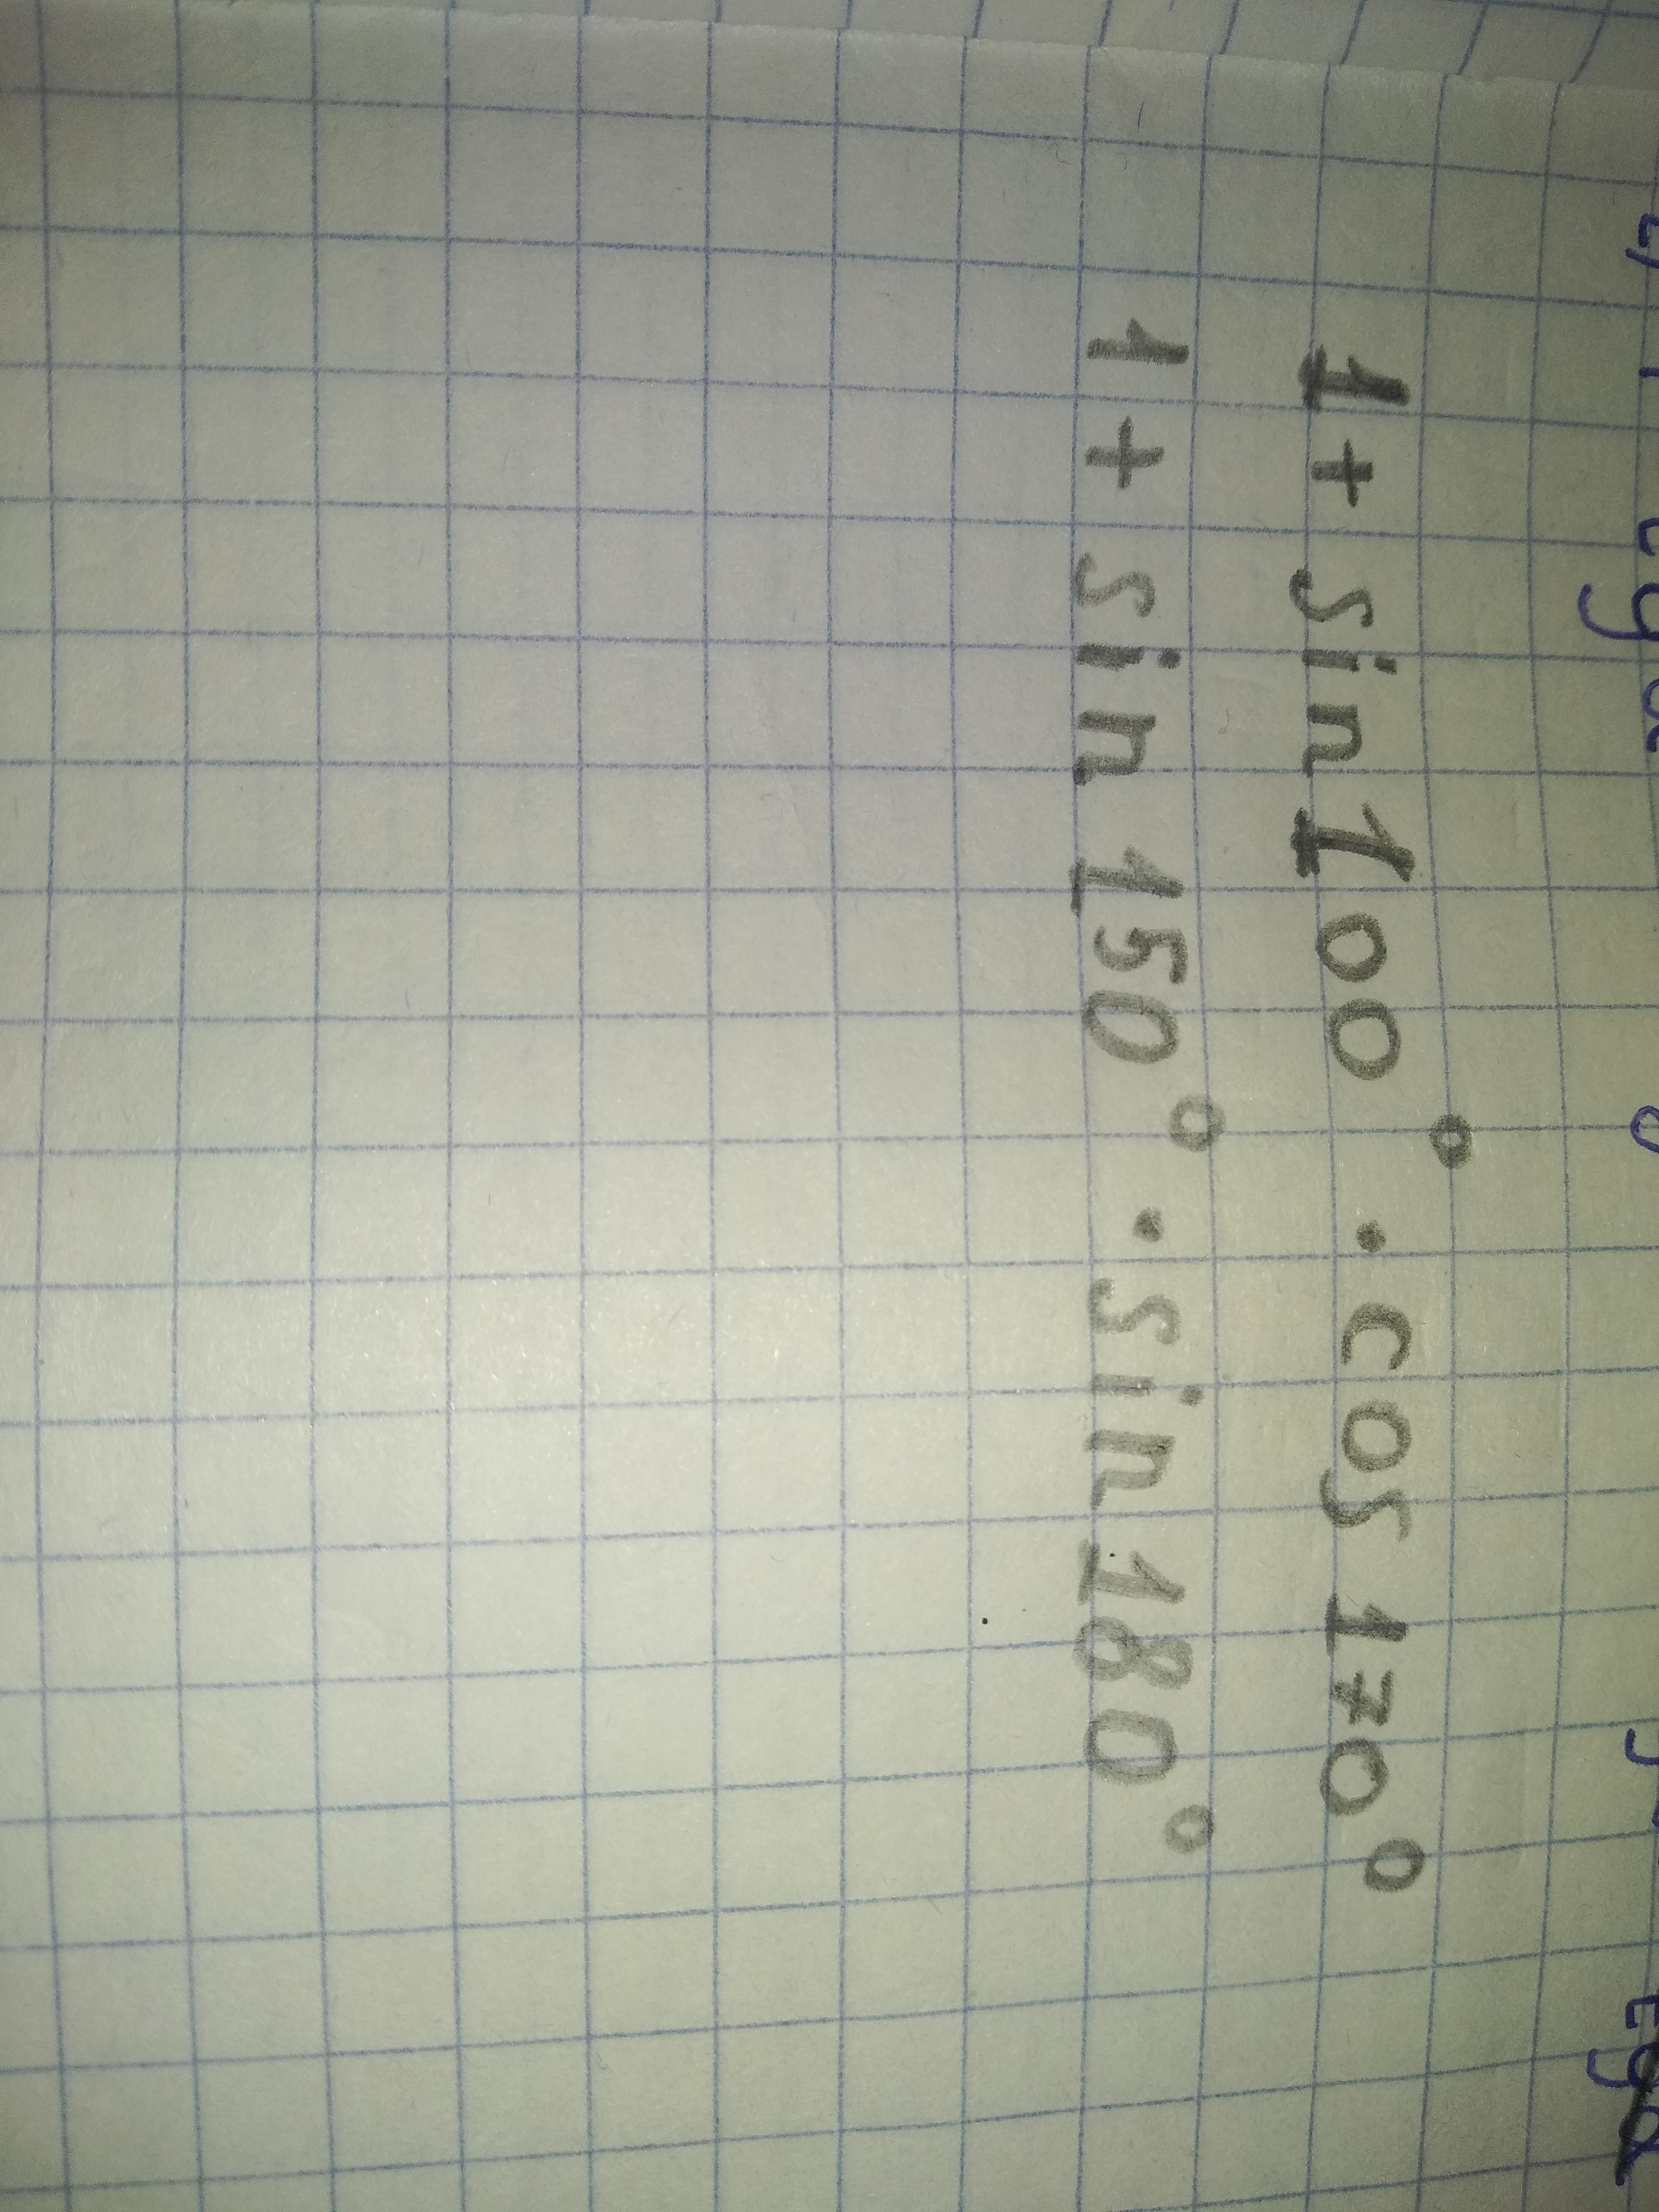 1 + sin 100° · cos 170°
1 + sin 150° · sin 180°